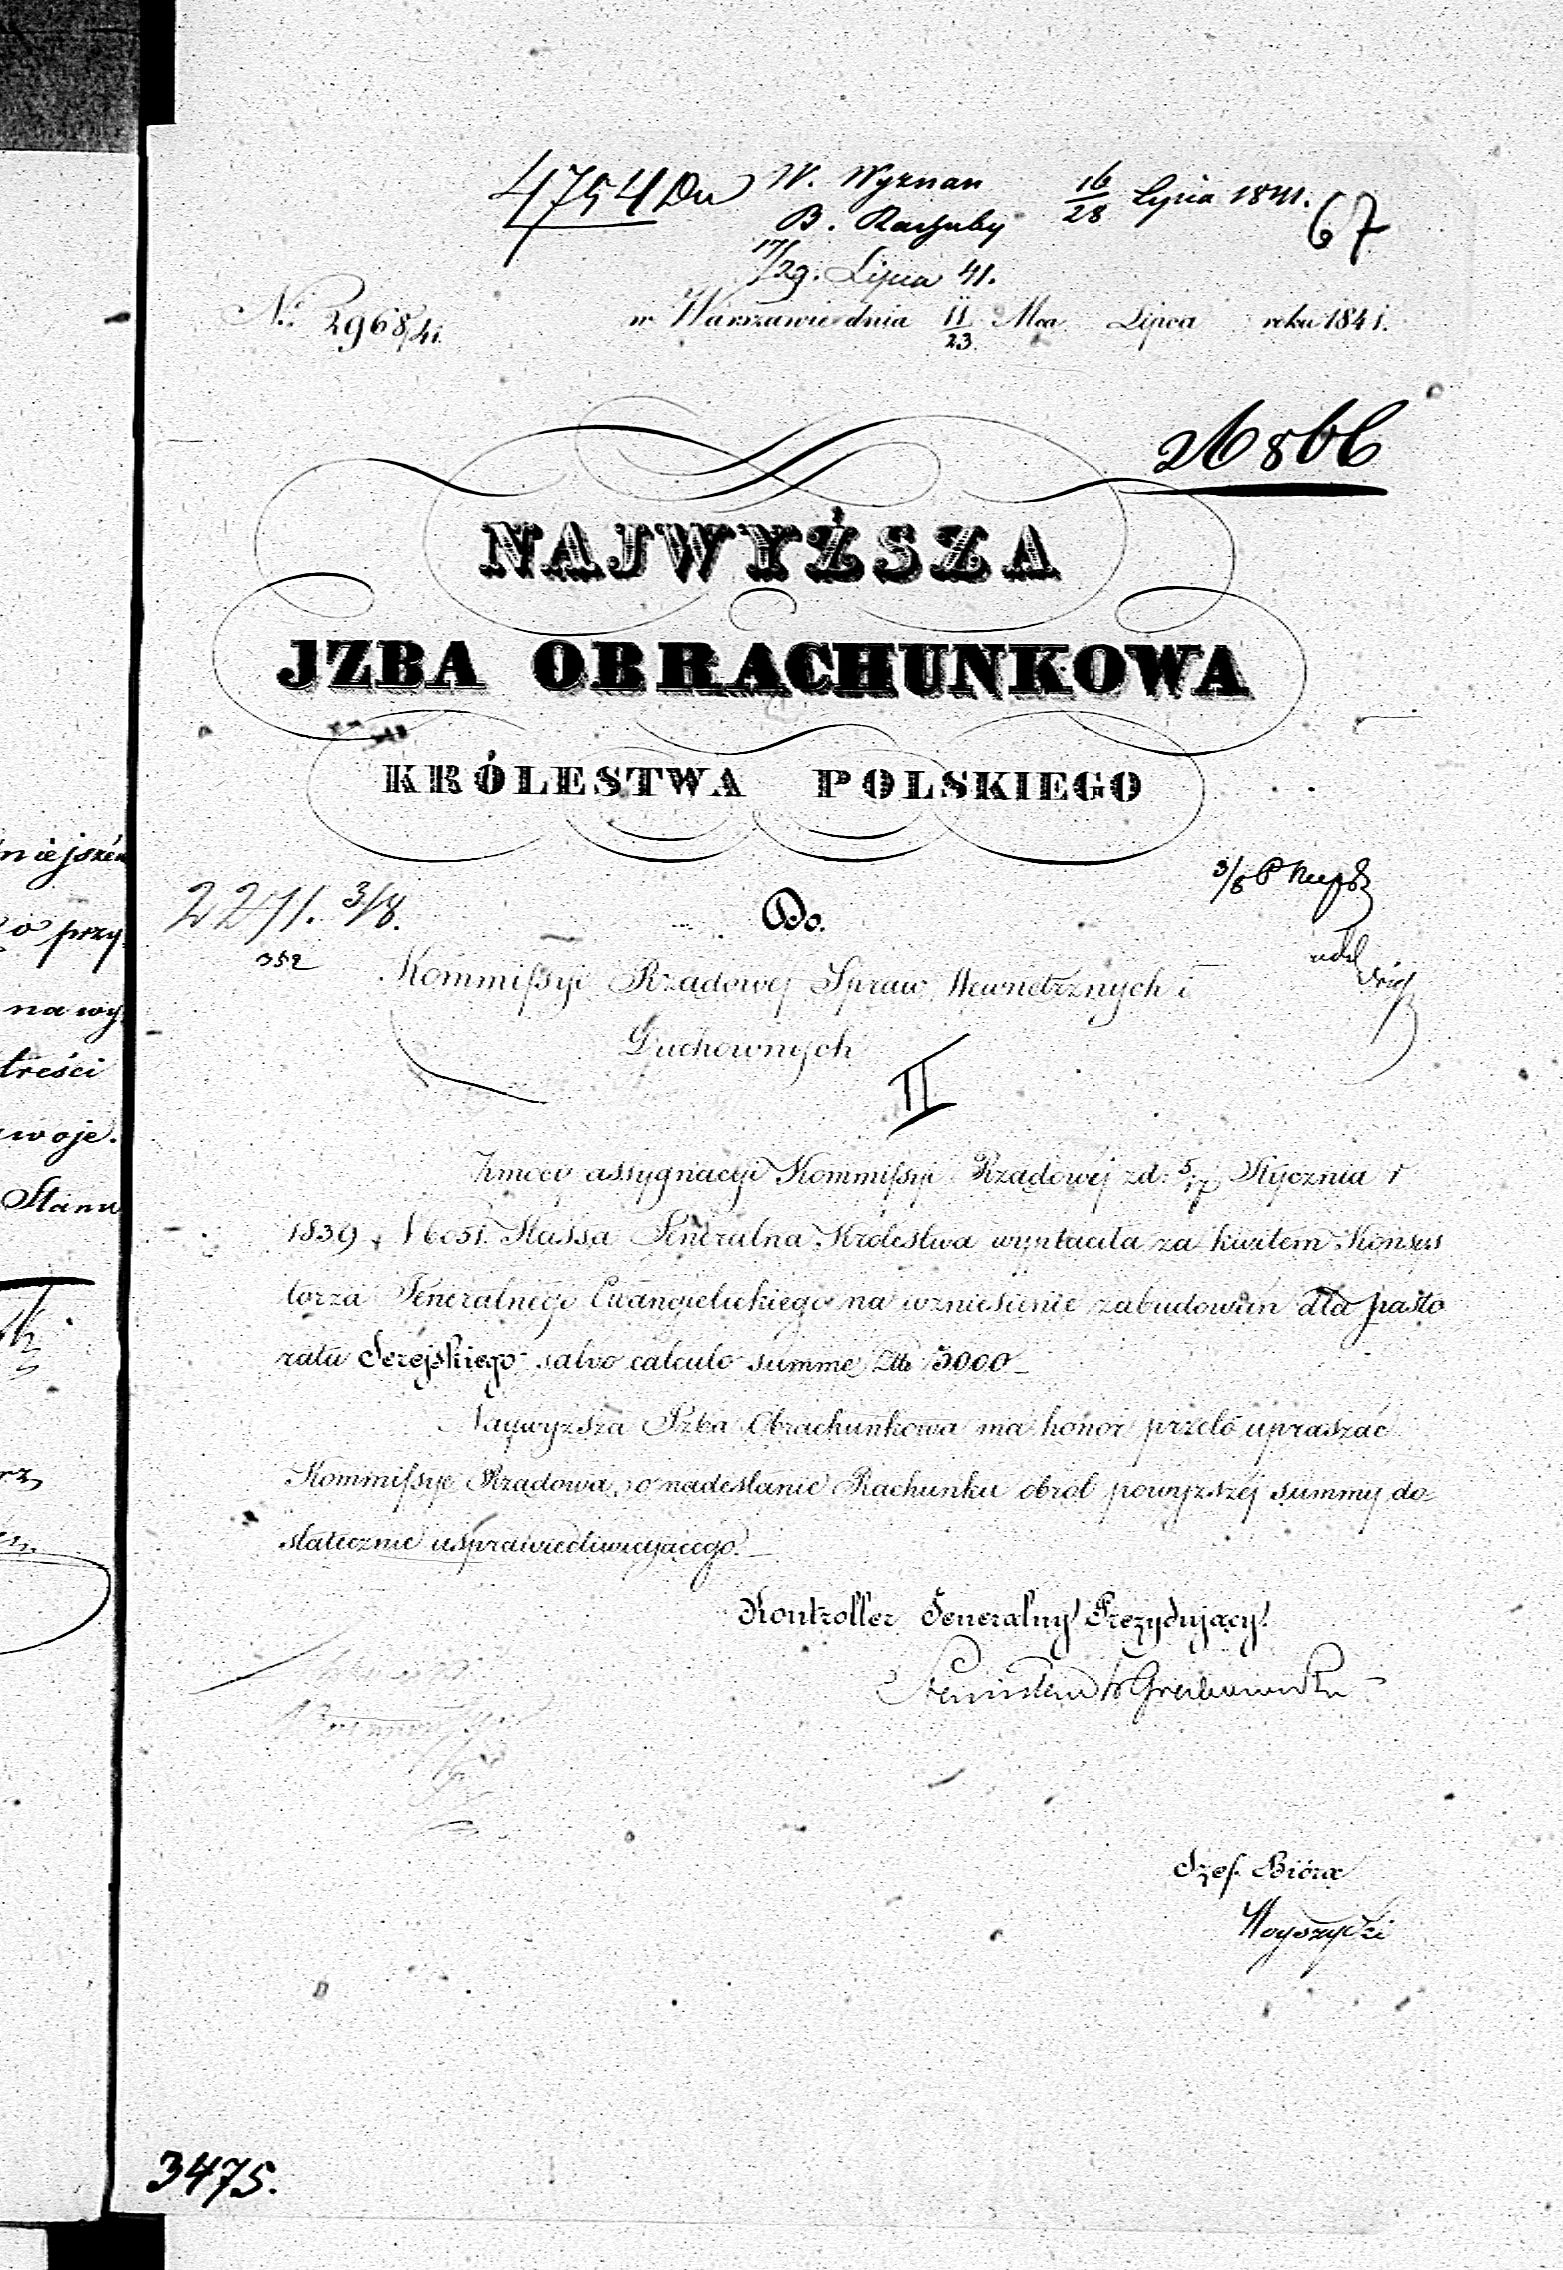 4754 Du W. Wyznań 16/28 Lipca 1841. 67
B. Rachuby
17/29. Lipca 41.
No. 2968/41. w Warszawie dnia 11/23 Mca Lipca roku 1841.
NAJWYŻSZA
JZBA OBRACHUNKOWA
KRÓLESTWA POLSKIEGO
2271. 3/8. Do. 3/8
352
Kommissyi Rządowej Spraw Wewnętrznych i
Duchownych
II
Zmocy assygnacyi Kommissyi Rządowej zd: 5/17 Stycznia r
1839 N 6051. Kassa Generalna Królestwa wypłaciła za kwitem Konsys
torza Generalnego Ewangielickiego na wzniesienie zabudowań dla pasto
ratu Serejskiego salvo calculo summę Złł 5000_
Naywyższa Izba Obrachunkowa ma honor przeto upraszać
Kommissyę Rządową, o nadesłanie Rachunku obrót powyższéj summy do-
statecznie usprawiedliwiającego._
Kontroller Generalny Prezydujący.
Stanisław Grabowski
Szef Bióra
Woyszycki
3475.
mniejszém
przy
na wy
treści
woje.
Stanu